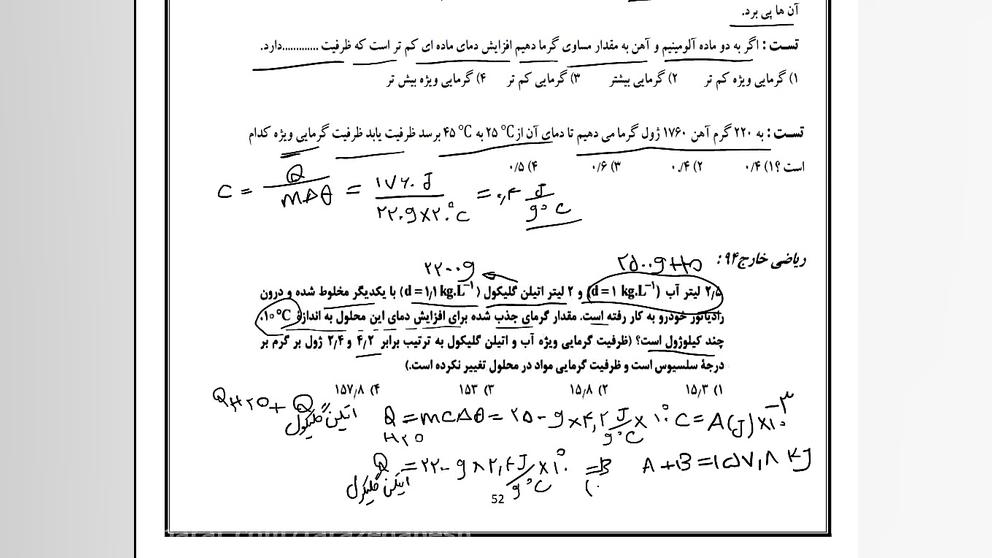 آن ها پی برد.
تست : اگر به دو ماده آلومینیم و آهن به مقدار مساوی گرما دهیم افزایش دمای ماده ای کم تر است که ظرفیت .............دارد.
۱) گرمایی ویژه کم تر ۲) گرمایی بیشتر ۳) گرمایی کم تر ۴) گرمایی ویژه بیش تر
تست : به ۲۲۰ گرم آهن ۱۷۶۰ ژول گرما می دهیم تا دمای آن از ۲۵ °C به ۴۵ °C برسد ظرفیت یابد ظرفیت گرمایی ویژه کدام
است ؟ ۱) ۰/۴ ۲) ۰/۰۴ ۳) ۰/۶ ۴) ۰/۵
C = Q / mΔθ = ۱۷۶۰ J / ۲۲۰ g × ۲۰ °C = ۰,۴ J / g °C
ریاضی خارج ۹۴ :
۲۵۰۰ g H₂O ۲۲۰۰ g
۲٫۵ لیتر آب (d = ۱ kg.L⁻¹) و ۲ لیتر اتیلن گلیکول (d = ۱٫۱ kg.L⁻¹) با یکدیگر مخلوط شده و درون
رادیاتور خودرو به کار رفته است. مقدار گرمای جذب شده برای افزایش دمای این محلول به اندازهٔ ۱۰ °C،
چند کیلوژول است؟ (ظرفیت گرمایی ویژه آب و اتیلن گلیکول به ترتیب برابر ۴٫۲ و ۲٫۴ ژول بر گرم بر
درجهٔ سلسیوس است و ظرفیت گرمایی مواد در محلول تغییر نکرده است.)
۱) ۱۵٫۳ ۲) ۱۵٫۸ ۳) ۱۵۳ ۴) ۱۵۷٫۸
Q H₂O + Q اتیلن گلیکول
Q H₂O = mCΔθ = ۲۵۰۰ g × ۴,۲ J / g °C × ۱۰ °C = A (J) × ۱۰⁻³
Q اتیلن گلیکول = ۲۲۰۰ g × ۲,۴ J / g °C × ۱۰ = B A + B = ۱۵۷,۸ kJ
52